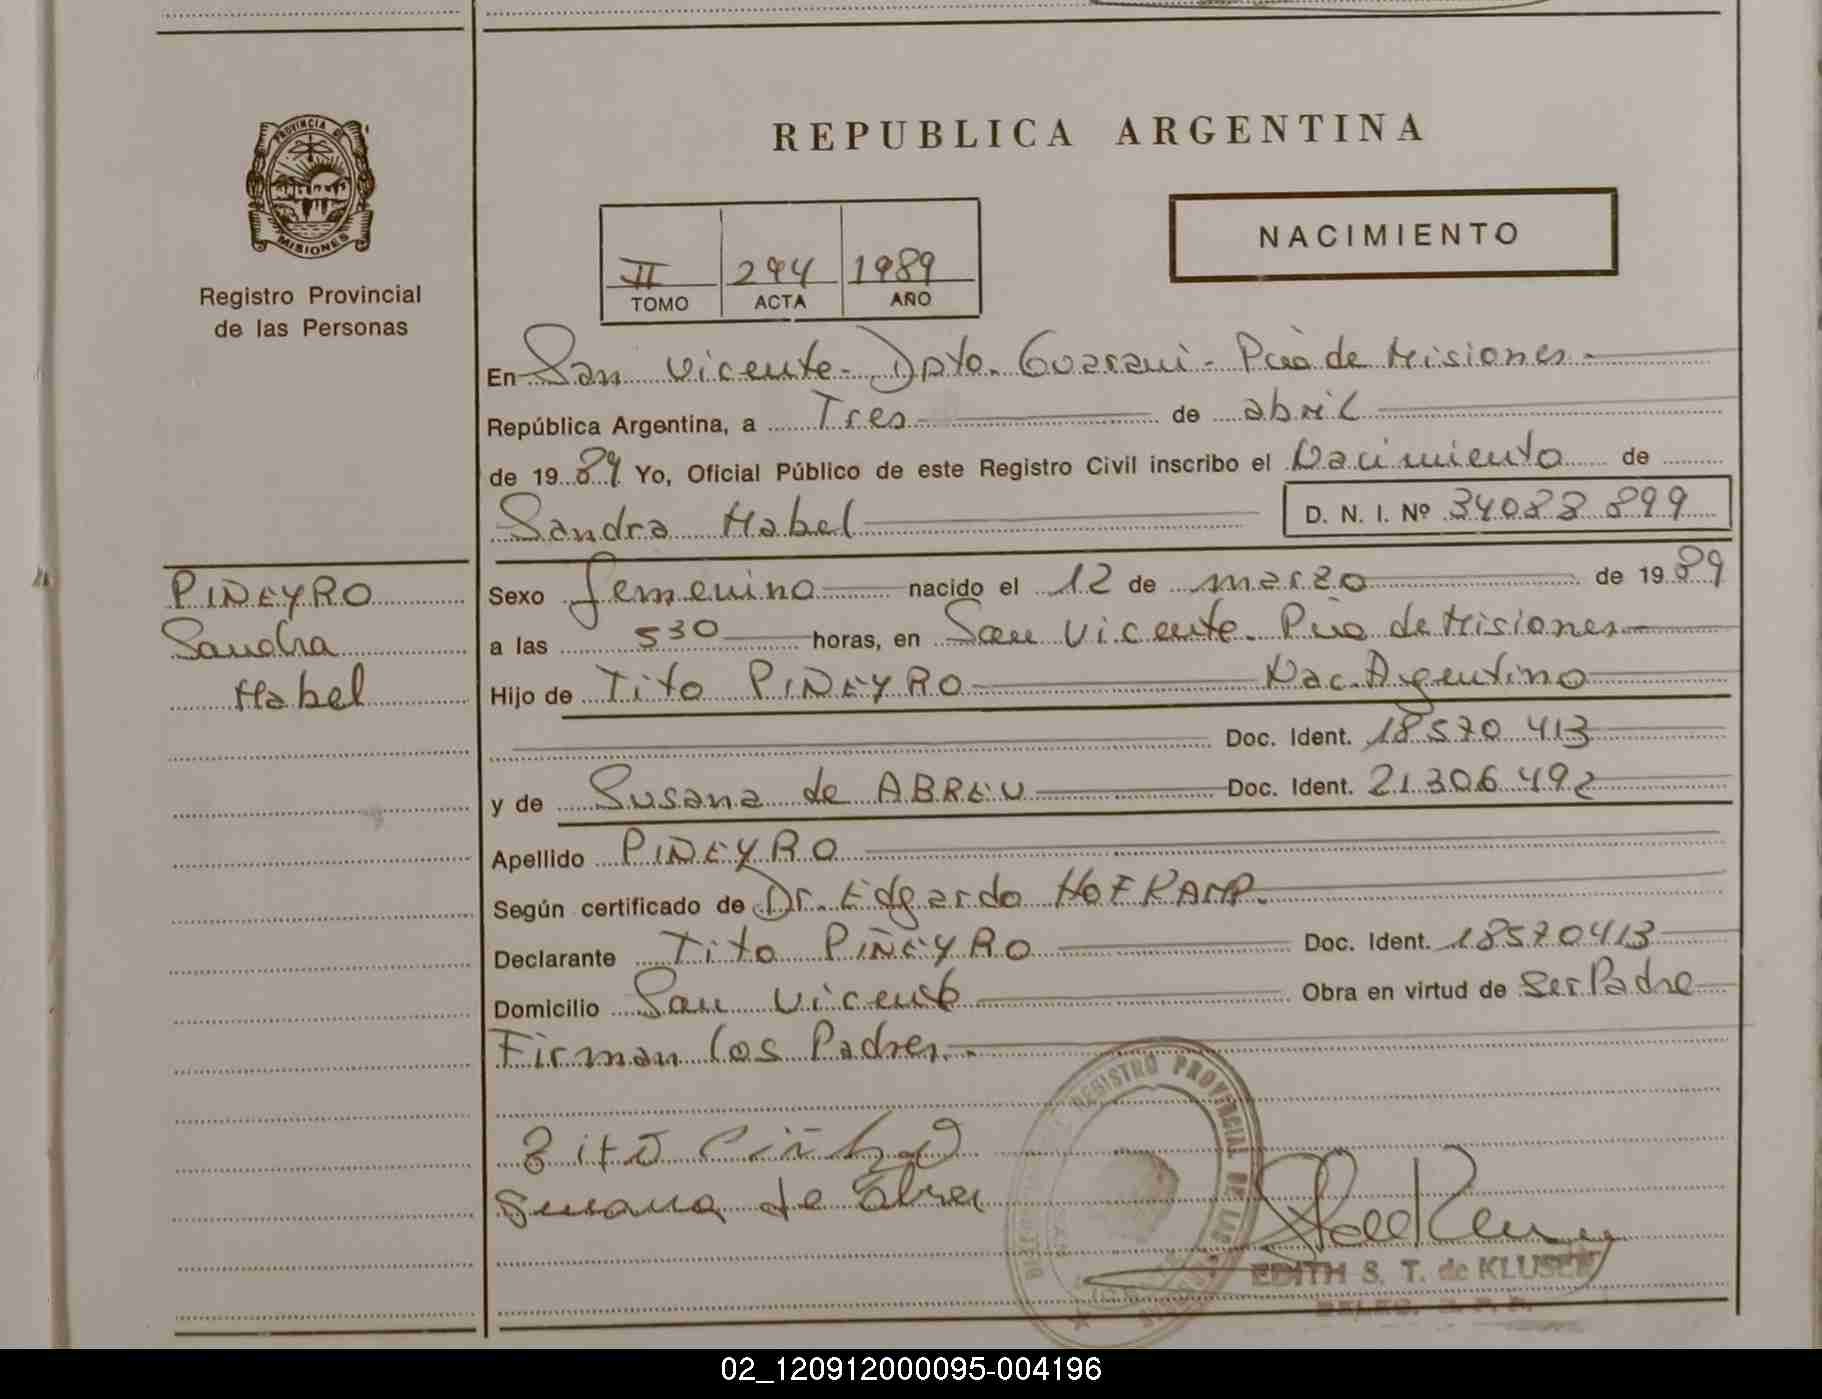 PROVINCIA DE
MISIONES
Registro Provincial
de las Personas
REPUBLICA ARGENTINA
NACIMIENTO
II 294 1989
TOMO ACTA AÑO
En San Vicente - Dpto. Guarani - Pcia de Misiones -
República Argentina, a Tres de abril
de 19 89 Yo, Oficial Público de este Registro Civil inscribo el Nacimiento de
Sandra Mabel D. N. I. Nº 34088 899
PIÑEYRO
Sandra
Mabel
Sexo femenino nacido el 12 de marzo de 19 89
a las 530 horas, en San Vicente. Pcia de Misiones
Hijo de Tito PIÑEYRO Nac. Argentino
Doc. Ident. 18570 413
y de Susana de ABREU Doc. Ident. 21.306.492
Apellido PIÑEYRO
Según certificado de Dr. Edgardo HOFKAMP.
Declarante Tito PIÑEYRO Doc. Ident. 18570413
Domicilio San Vicente Obra en virtud de Ser Padre
Firman los Padres.-
REGISTRO PROVINCIAL DE LAS
Susana de Abreu
EDITH S. T. de KLUSEN
02_120912000095-004196